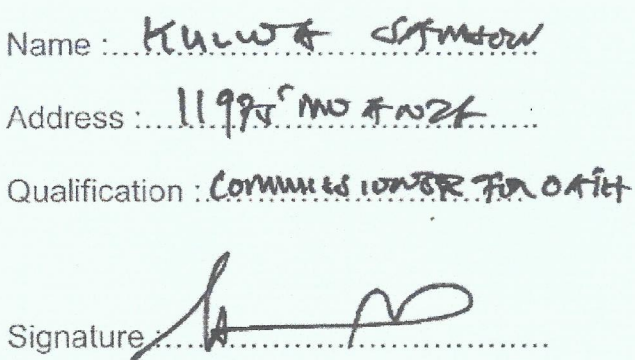 Name : KULWA SAMSON
Address : 11975 MWANZA
Qualification : COMMISSIONER FOR OATH
Signature :